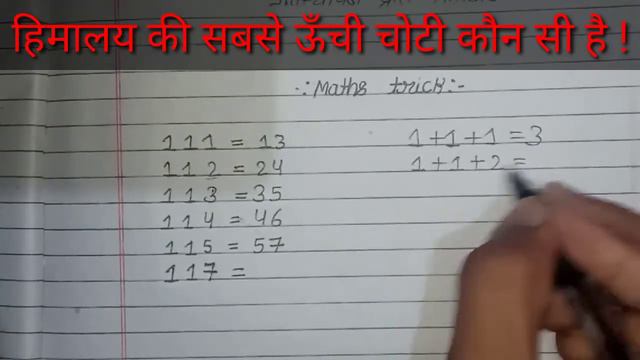 हिमालय की सबसे ऊँची चोटी कौन सी है !
∴ Maths trick :-
111 = 13
112 = 24
113 = 35
114 = 46
115 = 57
117 =
1+1+1 = 3
1+1+2 =